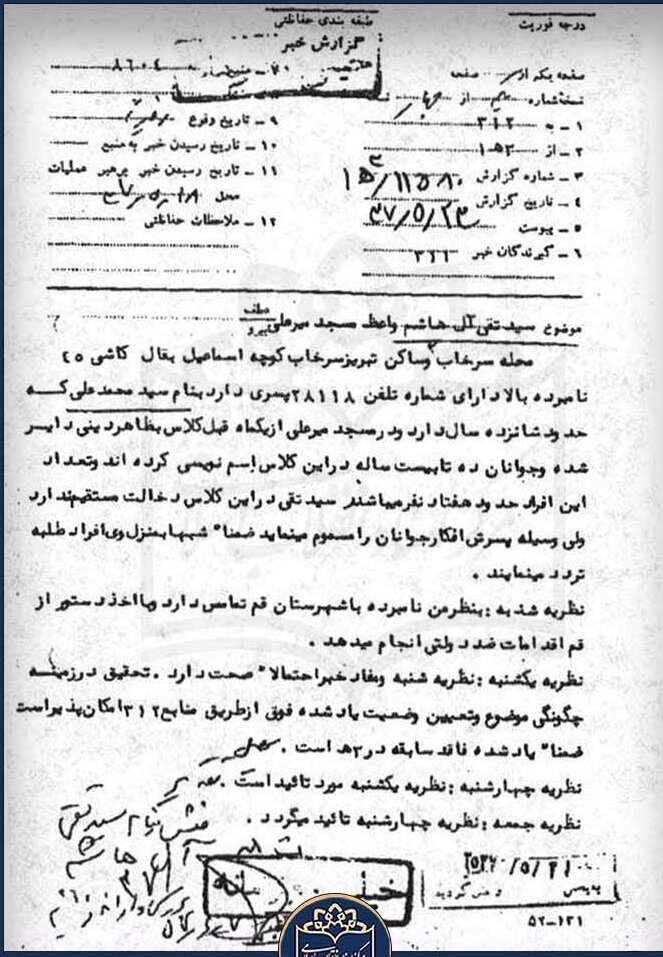 درجه فوریت
طبقه بندی حفاظتی
گزارش خبر
صفحه یکم از صفحه
نسخه شماره یکم از چهار نسخه
۱ـ به ۳۱۲
۲ـ از
۳ـ شماره گزارش
۴ـ تاریخ گزارش ۳۷/۵/۲۳
۵ـ پیوست
۶ـ گیرندگان خبر
۷ـ منبع ۸۶۰۴
۹ـ تاریخ وقوع
۱۰ـ تاریخ رسیدن خبر به منبع
۱۱ـ تاریخ رسیدن خبر برهبر عملیات
محل ۳۷/۵/۱۸
۱۲ـ ملاحظات حفاظتی
موضوع سید تقی آل هاشم واعظ مسجد میرعلی
عطف
پیرو
محله سرخاب وساکن تبریز سرخاب کوچه اسماعیل بقال کاشی ۴۵
نامبرده بالا دارای شماره تلفن ۲۸۱۱۸ پسری دارد بنام سید محمد علی که
حدود شانزده سال دارد ودر مسجد میرعلی از یکماه قبل کلاس بظاهر دینی دایر
شده وجوانان ده تا بیست ساله در این کلاس اسم نویسی کرده اند وتعداد
این افراد حدود هفتاد نفر میباشند سید تقی در این کلاس دخالت مستقیم ندارد
ولی وسیله پسرش افکار جوانان را مسموم مینماید ضمنا" شبها بمنزل وی افراد طلبه
تردد مینمایند .
نظریه شنبه : بنظر من نامبرده با شهرستان قم تماس دارد وبا اخذ دستور از
قم اقدامات ضد دولتی انجام میدهد .
نظریه یکشنبه : نظریه شنبه ومفاد خبر احتمالا" صحت دارد . تحقیق در زمینه
چگونگی موضوع وتعیین وضعیت یاد شده فوق از طریق منابع ۳۱۲ امکان پذیر است
ضمنا" یاد شده فاقد سابقه در ۳ هـ است .
نظریه چهارشنبه : نظریه یکشنبه مورد تائید است .
نظریه جمعه : نظریه چهارشنبه تائید میگردد .
سید تقی
آل هاشم
خیلی محرمانه
۲۵۳۷/۵/۲۱
۵۲-۱۲۱